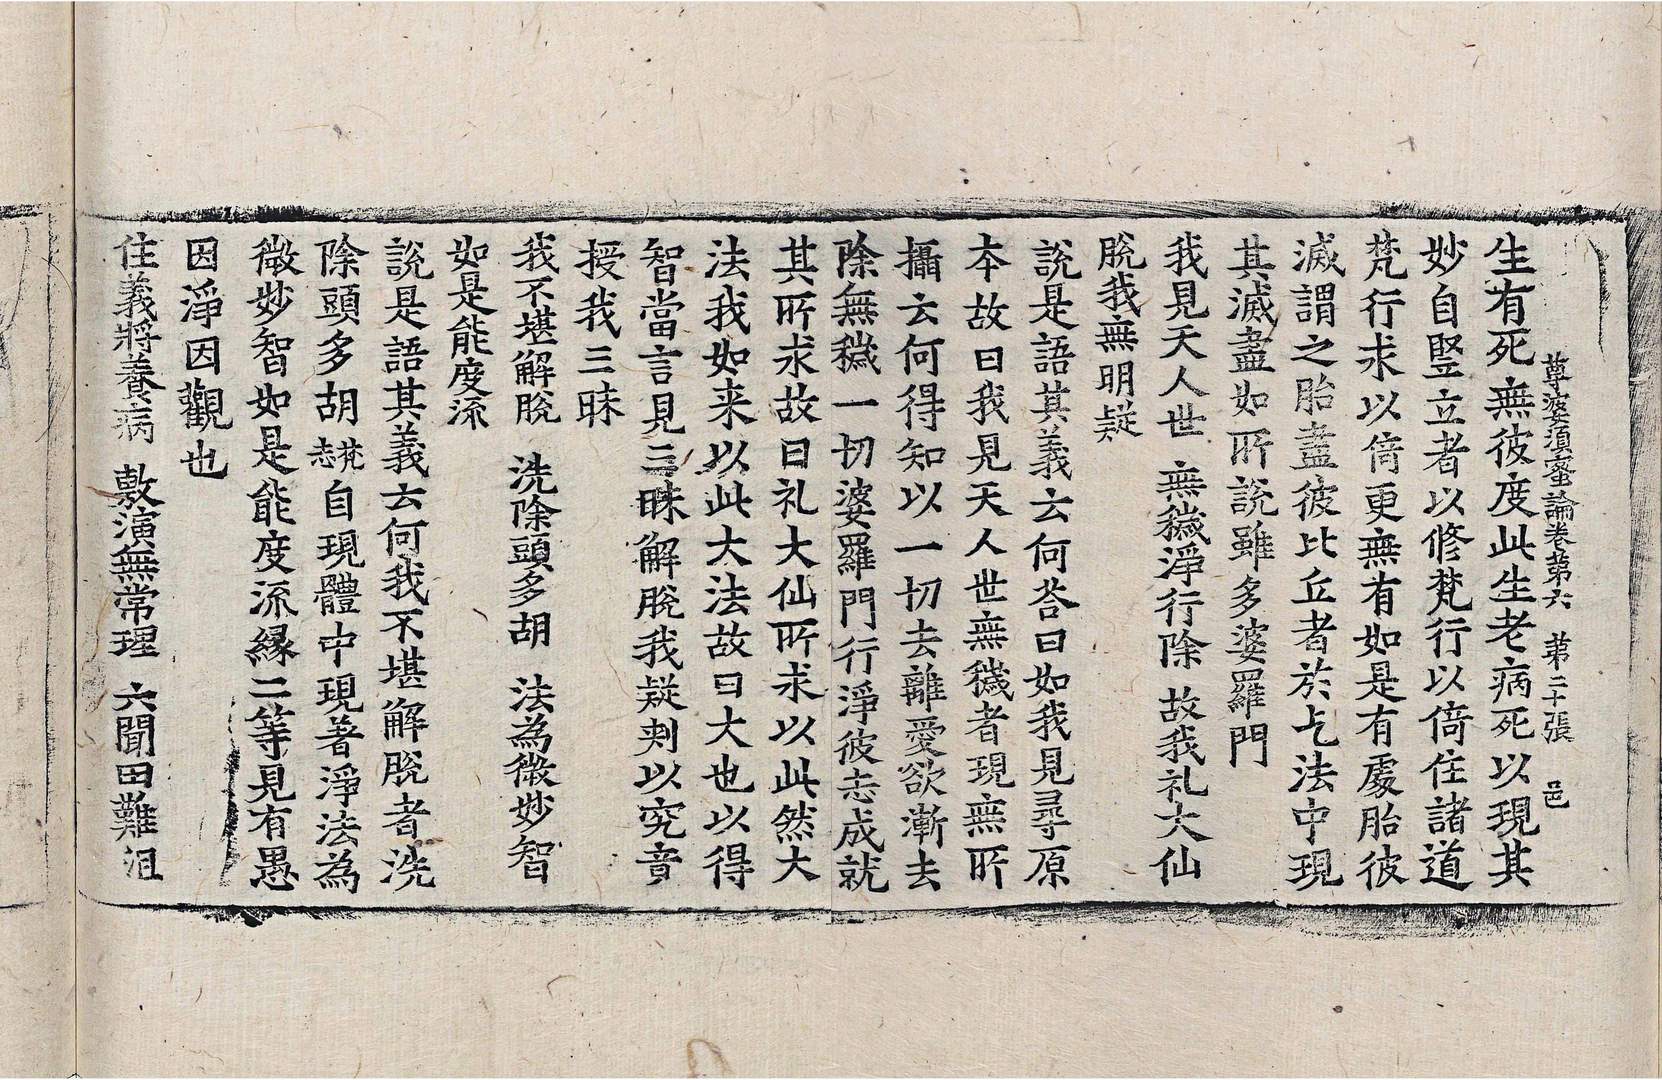 尊婆須蜜論卷第六 第二十張 邑
生有死無彼度此生老病死以現其
妙自竪立者以修梵行以倚住諸道
梵行求以倚更無有如是有處胎彼
滅謂之胎盡彼比丘者於此法中現
其滅盡如所說雖多婆羅門
我見天人世 無穢淨行除 故我礼大仙
脫我無明疑
說是語其義云何答曰如我見尋原
本故曰我見天人世無穢者現無所
攝云何得知以一切去離愛欲漸去
除無穢一切婆羅門行淨彼志成就
其所求故曰礼大仙所求以此然大
法我如来以此大法故曰大也以得
智當言見三昧解脫我疑刺以究音
授我三昧
我不堪解脫 洗除頭多胡 法為微妙智
如是能度流
說是語其義云何我不堪解脫者洗
除頭多胡梵志自現體中現著淨法為
微妙智如是能度流緣二等見有愚
因淨因觀也
住義將養病 敷演無常理 六聞田難沮